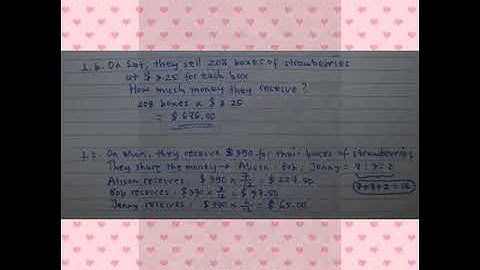 1.b. On Sat, they sell 208 boxes of strawberries
at $ 3.25 for each box
How much money they receive ?
208 boxes x $ 3.25
= $ 676.00
1.c. On Mon, they receive $ 390 for their boxes of strawberries
They share the money → Alison : Bob : Jenny = 7 : 3 : 2
Alison receives : $ 390 x 7/12 = $ 227.50
7+3+2 = 12
Bob receives : $ 390 x 3/12 = $ 97.50
Jenny receives : $ 390 x 2/12 = $ 65.00